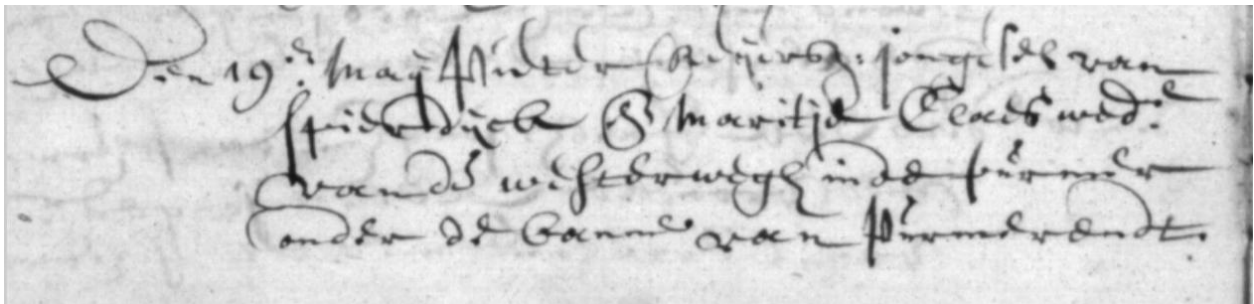 Den 19.en Maij Pieter Reijersz: jongesel van
Spierdijck & Maritje Claes wed.e
van de westerwegh inde purmer
onder de banne van Purmerendt.